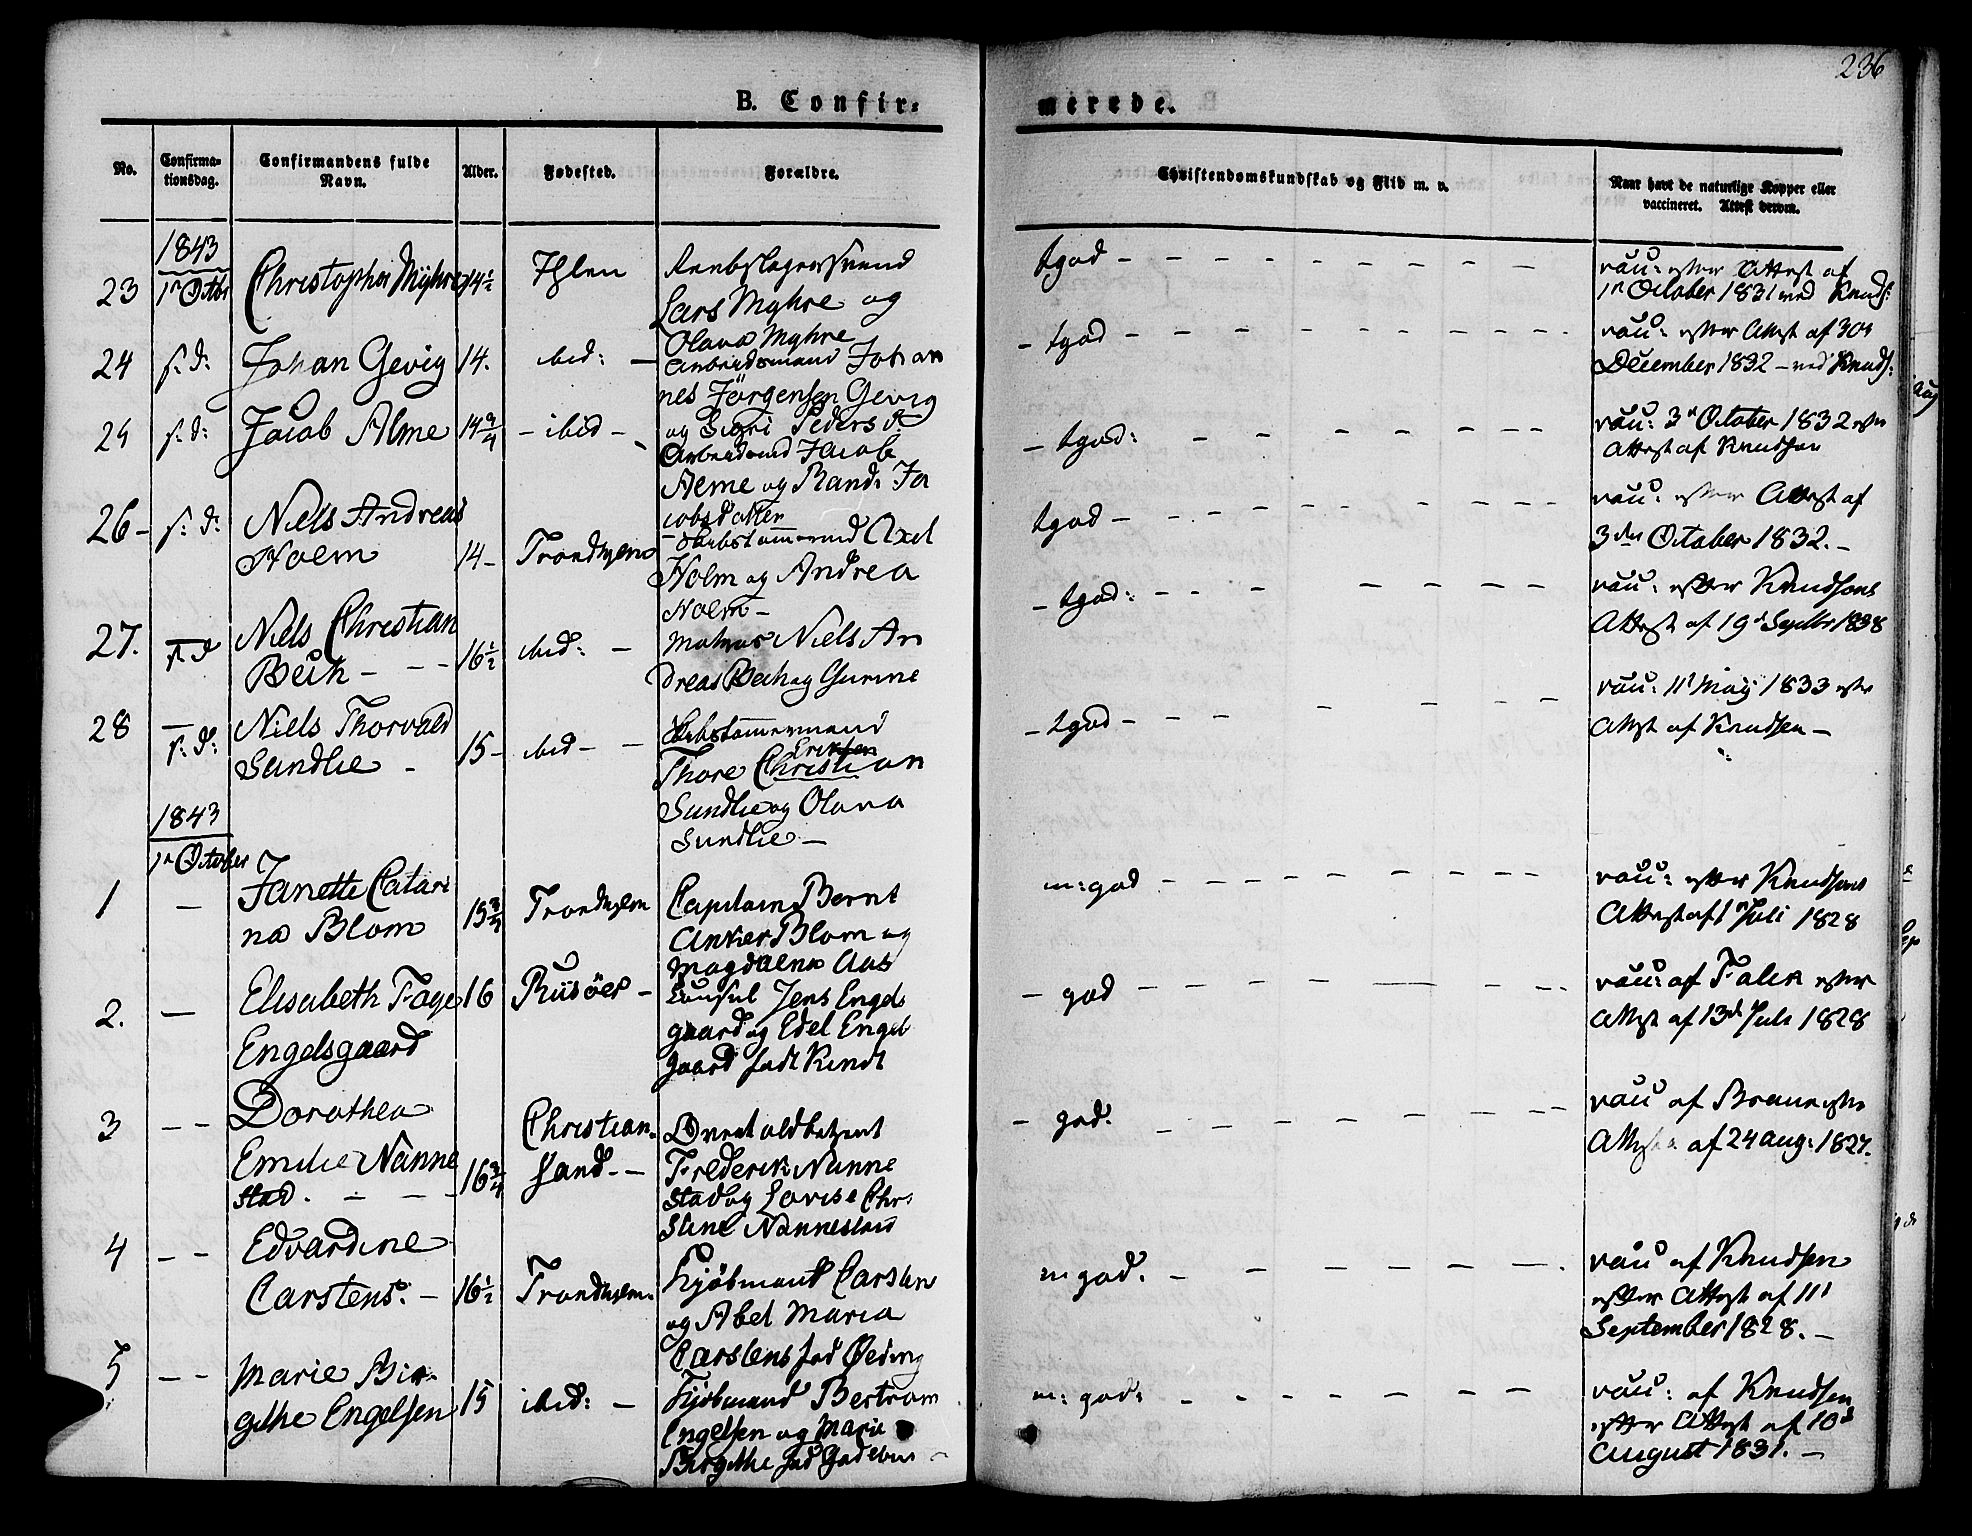 236
B. Confir=
merede.
No.
Confirma-
tionsdag.
Confirmandens fulde
Navn.
Alder.
Fødested.
Forældre.
Christendomskundskab og Flid m. v.
Naar havt de naturlige Kopper eller
vaccineret. Attest derom.
1843
23 1n Octbr Christopher Myhre 14½ Ihlen
Lars Myhre og
Olava Myhre
tgod
vacc: efter Attest af
1n October 1831 ved Knuds:
24 s: d: Johan Gevig 14. ibid: —
Arbeidsmand Johan
nes Jörgensen Gevig
og Sigri Pedersd
- tgod
vacc: efter Attest af 30s
December 1832 — ved Knuds:
25 s: d: Jacob Alme 14¾ - ibid -
Arbeidsmd Jacob
Alme og Randi Ja
cobsdatter
- tgod:
vacc: 3d October 1832 efter
Attest af Knudsen
26 - s: d: Niels Andreas
Holm 14 - Trondhjem
Axel
Holm og Andrea
Holm -
tgod
vacc: efter Attest af
3die October 1832. -
27. s: d Niels Christian
Beck - 16½ ibid: -
Matros Niels An
dreas Beck og Gurine
- tgod:
vacc: efter Knudsens
Attest af 19d Septbr 1838
28 s: d: Niels Thorvald
Sundlie - 15 - ibid -
Skibstømmermand
Eriksen
Thore Christian
Sundlie og Olava
Sundlie -
- tgod
vacc: 11t May 1833 efter
Attest af Knudsen -
1843
1n October
1 - Janette Catari
na Blom 15¾ Trondhjem
Capitain Bernt
Anker Blom og
Magdalena Aas
m: god
vacc: efter Knudsens
Attest af 1n Juli 1828
2. - Elisabeth Faye
Engelsgaard 16 Riisöer -
Consul Jens Engels
gaard og Edel Engel
gaard født Kindt
- god
vacc: af Falck efter
Attest af 13d Juli 1828
3 - - Dorothea
Emilie Nanne
stad. 16¾ Christian-
sand - -
Frederik Nanne
stad og Lovise Chri
stine Nannestad
- god.
vacc af Braun efter
Attest af 24 Aug: 1827.
4 - - Edvardine
Carstens. - 16½ Trondhjem.
Kjöbmand Carsten
og Abel Maria
Carstens fød Øeding
m god.
vacc af Knudsen
efter Attest af 11t
September 1828. -
5 - - Marie Bir-
githe Engelsen 15 ibid: -
Kjöbmand Bertram
Engelsen og Marie
Birgithe fød
m: god:
vacc: af Knudsen
efter Attest af 10d
August 1831. -